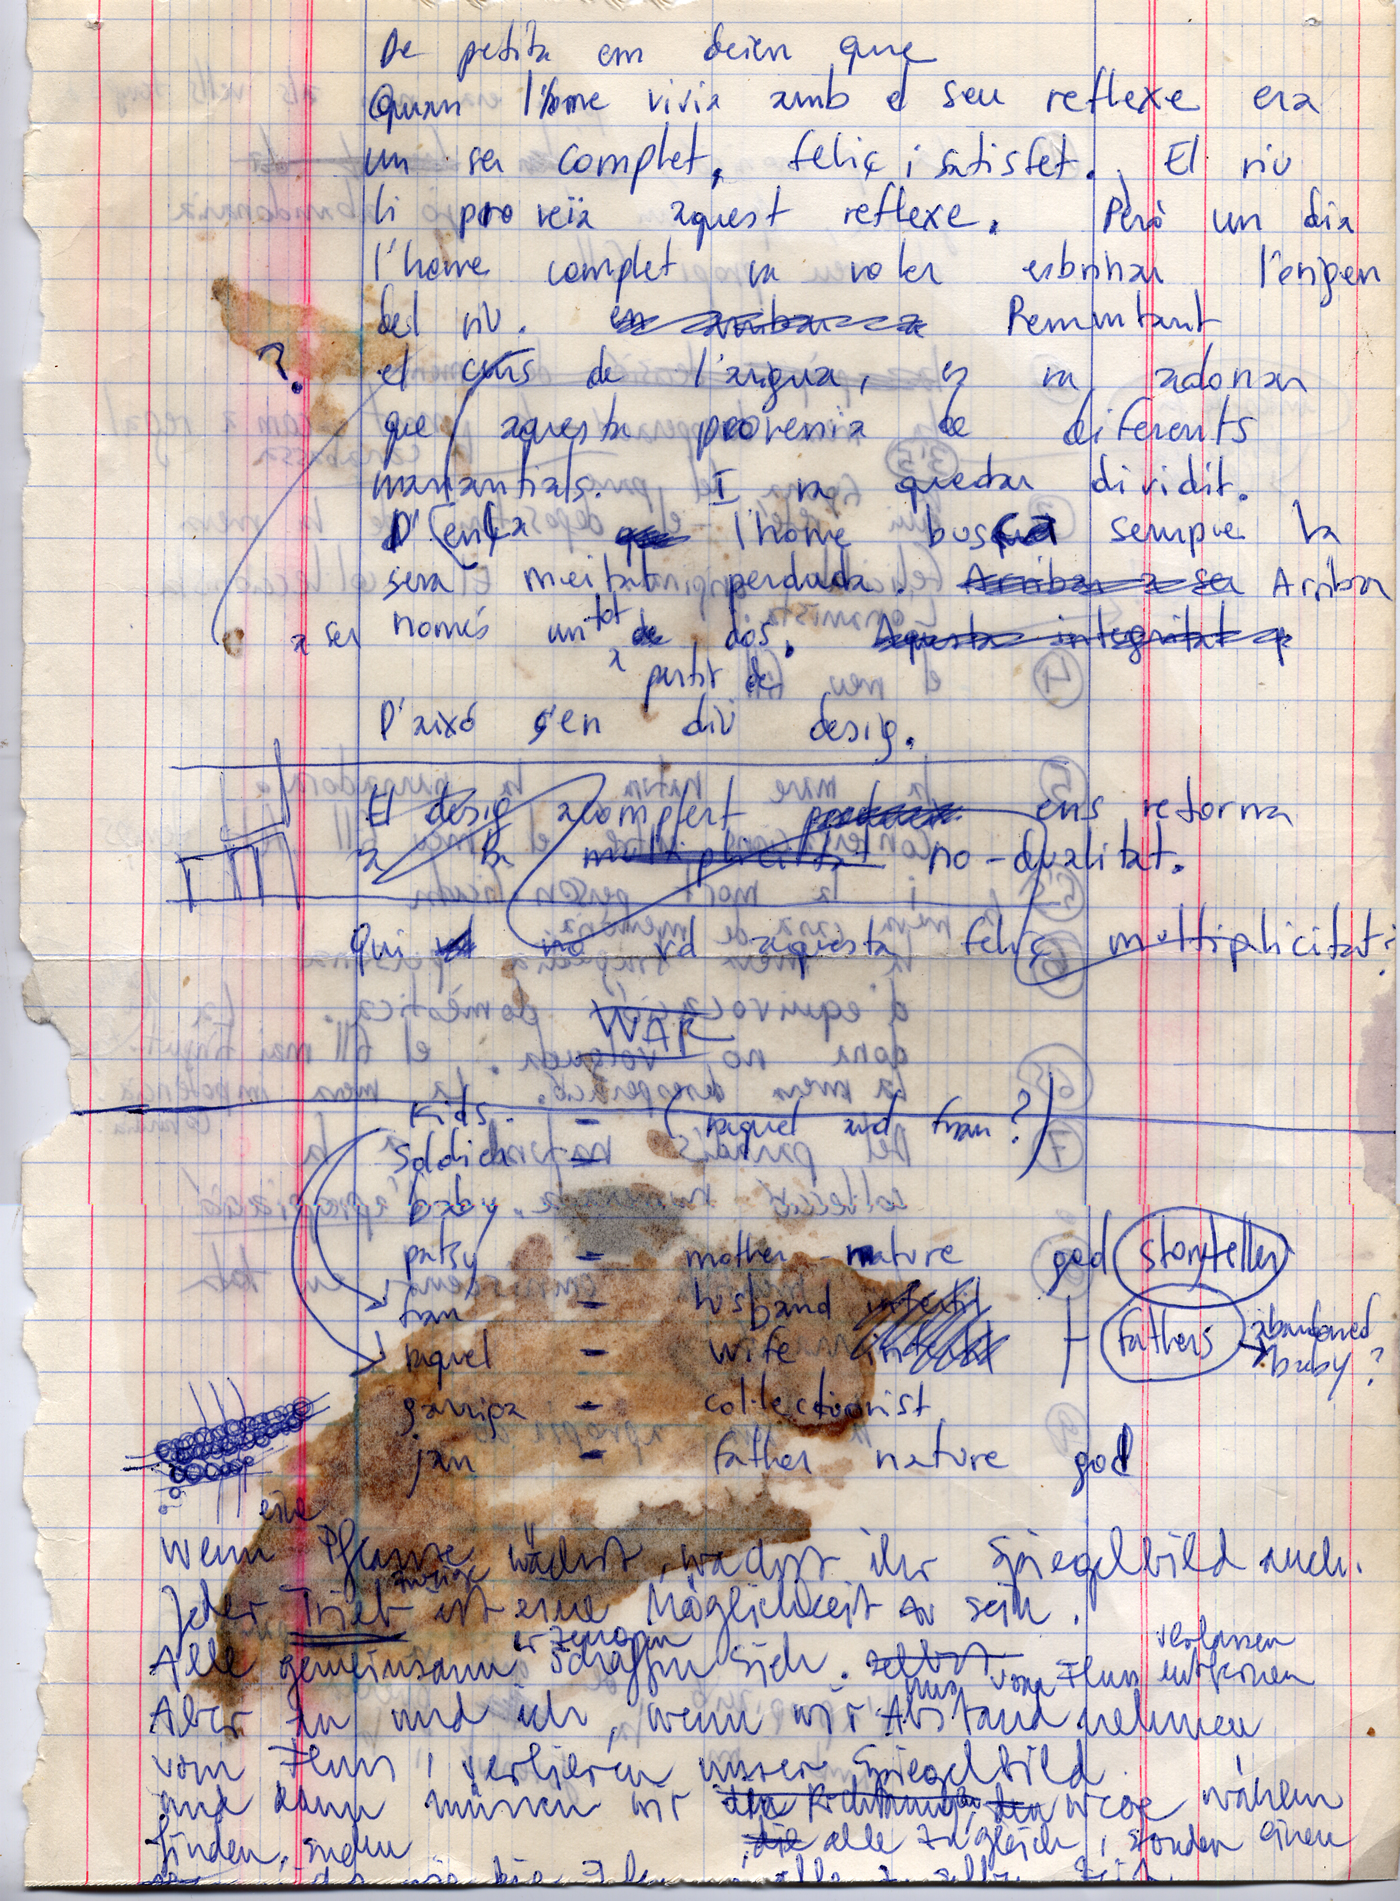 De petita em deien que
Quan l'home vivia amb el seu reflexe era
un ser complet, feliç i satisfet. El riu
li proveïa aquest reflexe. Però un dia
l'home complet va voler esbrinar l'origen
del riu. en arribar a Remuntant
? el curs de l'aigua, es va adonar
que aquesta provenia de diferents
manantials. I va quedar dividit.
D'ençà que l'home busca sempre la
seva meitat perduda. Arriba a ser Arriba
a ser només un tot de dos. Aquesta integritat q
a partir de
D'això s'en diu desig.
El desig acomplert ens retorna
a la multiplicitat no-dualitat.
Qui no vol aquesta feliç multiplicitat?
WAR
Kids. - (raquel and fran?)
Soldier -
baby
patsy - mother nature god storyteller
fran - husband infertil
raquel - wife infertil fathers abandoned baby?
garripa - collectionist
jan - father nature god
eine
Wenn Pflanze wächst, wächst ihr Spiegelbild auch.
zweig
Jeder Trieb ist eine Möglichkeit zu sein.
erzeugen
Alle gemeinsam schaffen sich. selbst
verlassen
uns vom Fluss entfernen
Aber du und ich, wenn wir Abstand nehmen
vom Fluss, verlieren unser Spiegelbild.
und dann müssen wir die Richtung, den Weg wählen
finden, suchen die alle zugleich, sondern einen